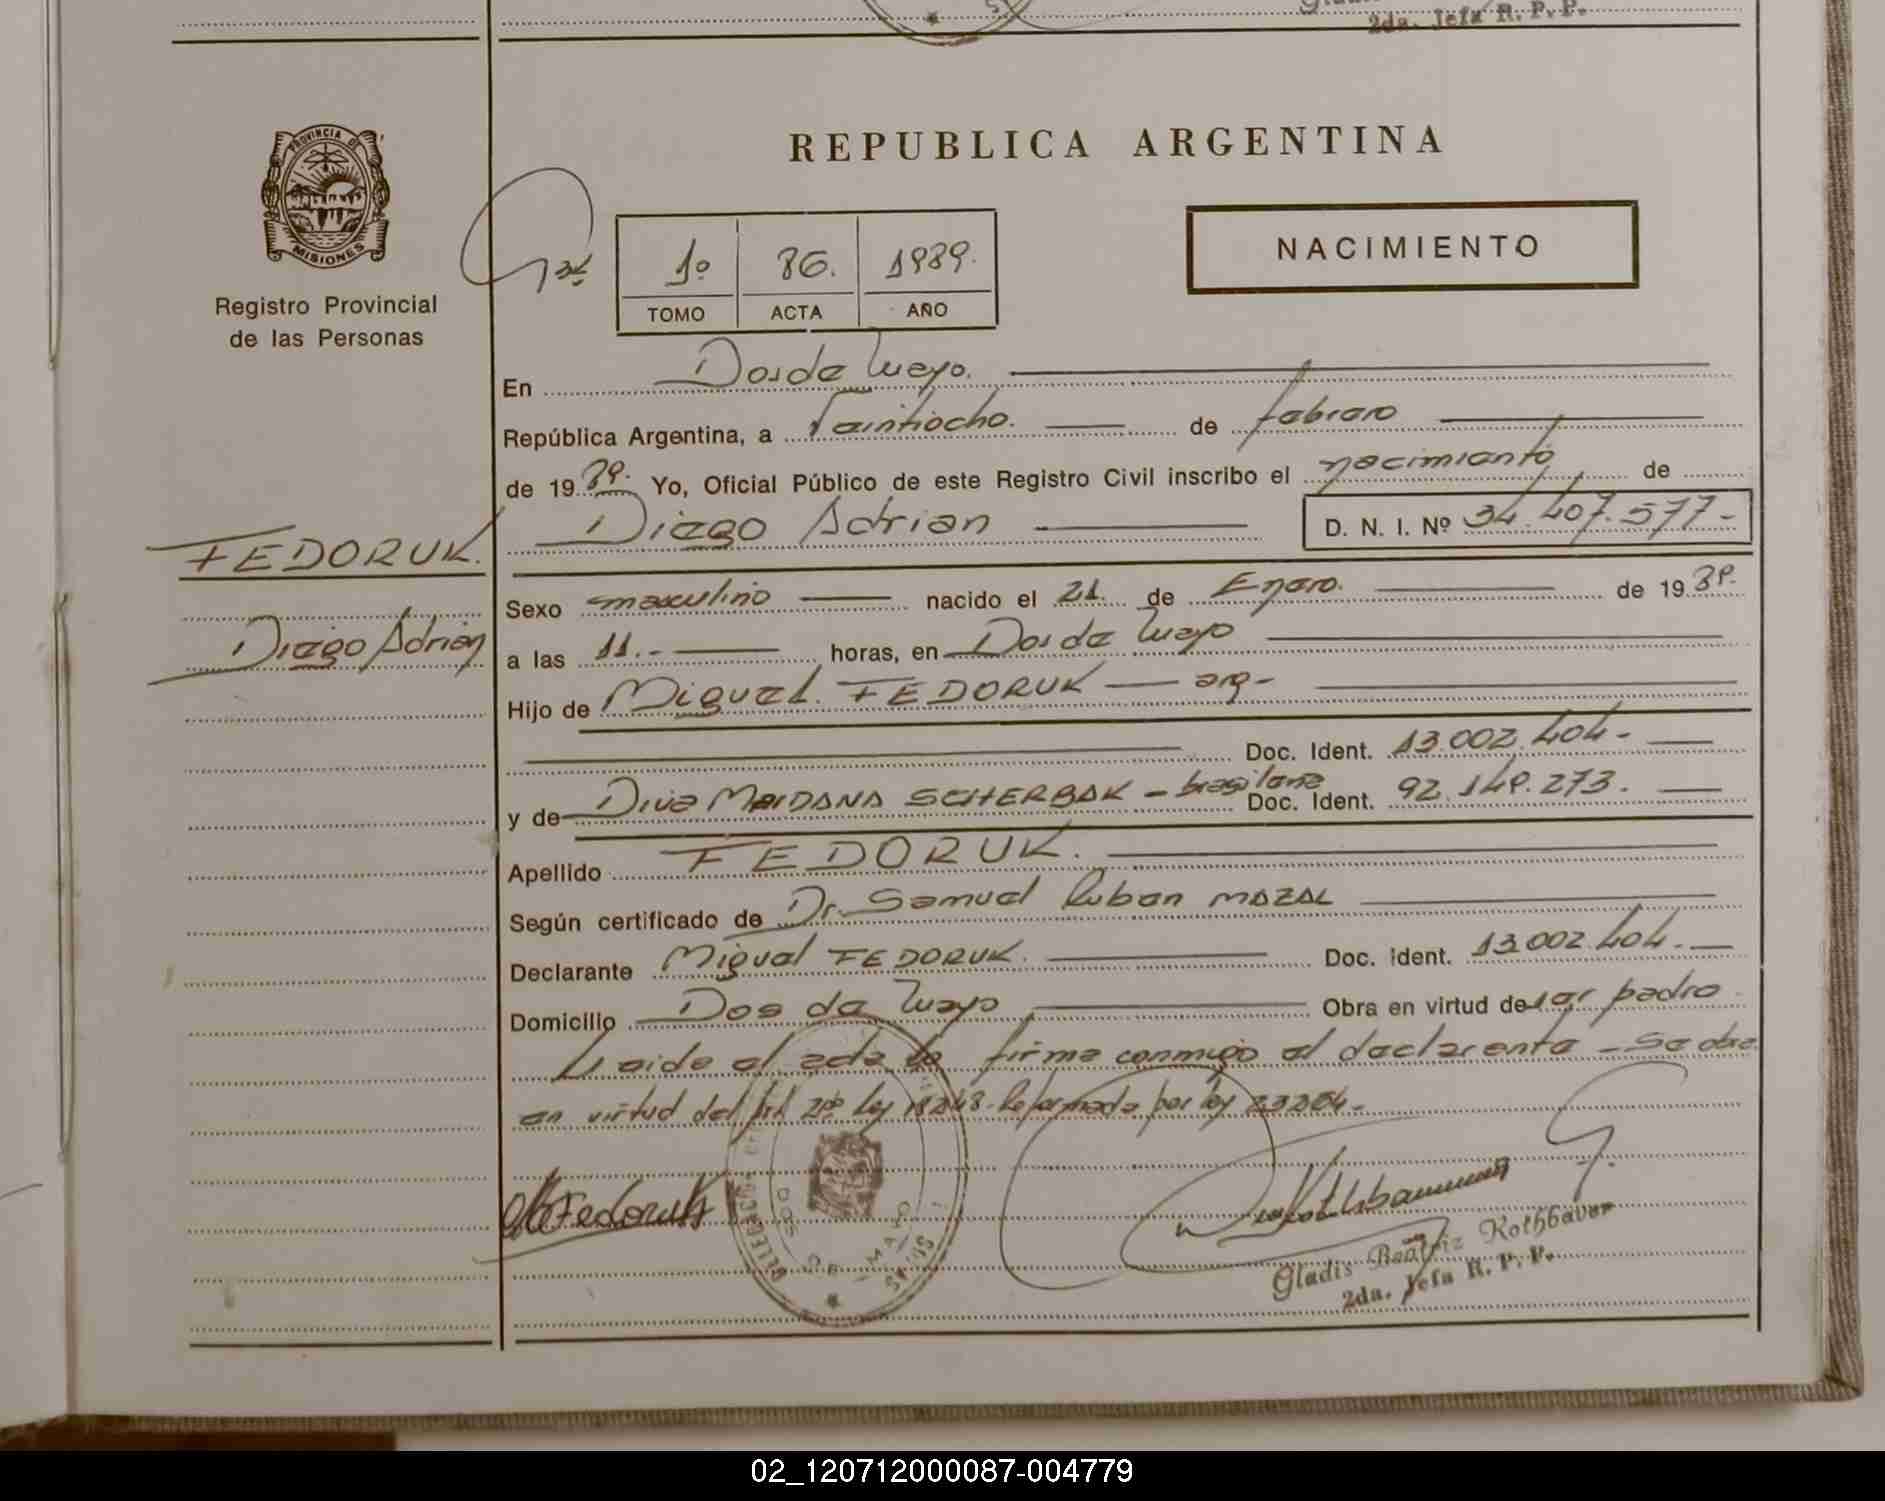 2da. Jefa R. P. P.
PROVINCIA DE
MISIONES
Registro Provincial
de las Personas
REPUBLICA ARGENTINA
NACIMIENTO
1º 86. 1989.
TOMO ACTA AÑO
En Dos de Mayo.
República Argentina, a Veintiocho. de febrero
de 1989. Yo, Oficial Público de este Registro Civil inscribo el nacimiento de
Diego Adrian D. N. I. Nº 34.407.577-
FEDORUK.
Diego Adrian
Sexo masculino nacido el 21. de Enero. de 1989.
a las 11.- horas, en Dos de Mayo
Hijo de Miguel. FEDORUK arg-
Doc. Ident. 13.002.404-
y de Diva MAIDANA SCHERBAK - brasilana Doc. Ident. 92.149.273.
Apellido FEDORUK.
Según certificado de Dr. Samuel Ruben MAZAL
Declarante Miguel FEDORUK. Doc. Ident. 13.002.404.
Domicilio Dos de Mayo Obra en virtud de ser padre
Leida el acta la firma conmigo el declarante -
en virtud del Art 29º Ley 18248. Reformada por ley 23264-
Fedoruk
DELEGACION
DOS DE MAYO
Gladis Beatriz Rothbauer
2da. Jefa R. P. P.
02_120712000087-004779